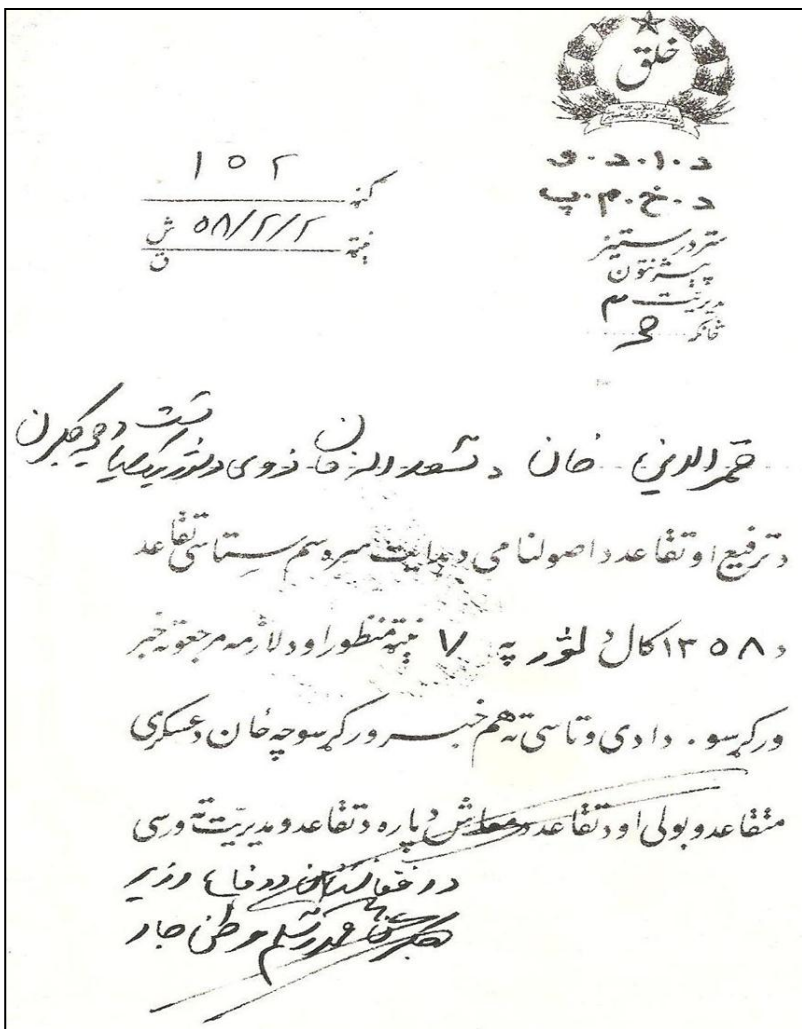 خلق
د.ا.د.و
د.خ.م.پ
ستردرستیز
پیژنتون
مدیریت ۳
څانګه
ګڼه ۱۵۲
نیټه ۵۸/۲/۲ ش
ق
قمرالدین خان د خان زوی د
د ترفیع او تقاعد د اصولنامی د هدایت سره سم ستاسی تقاعد
د ۱۳۵۸ کال د ثور په ۷ نیټه منظور او د لازمه مرجعو ته خبر
ورکړسو. دادی و تاسی ته هم خبر ورکړسو چه ځان د عسکری
متقاعد وبولی او د تقاعد د معاش دپاره د تقاعد و مدیریت ته ورسی
د افغانستان د دفاع وزیر
محمد اسلم وطنجار